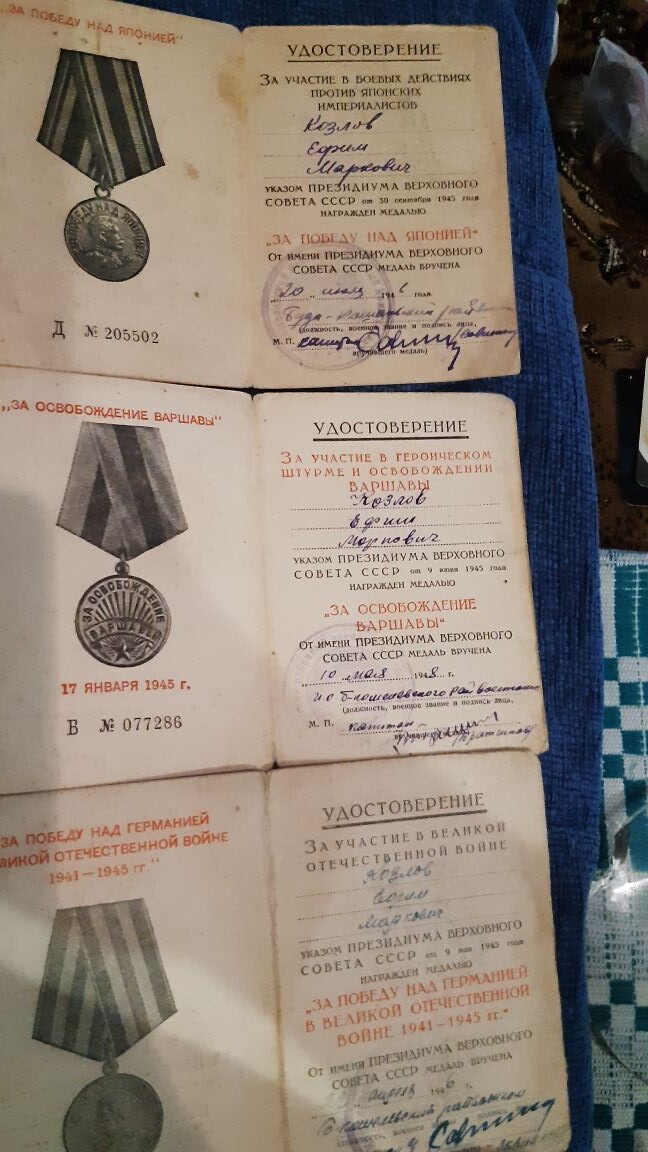 „ЗА ПОБЕДУ НАД ЯПОНИЕЙ"
ЗА ПОБЕДУ НАД ЯПОНИЕЙ
Д № 205502
УДОСТОВЕРЕНИЕ
ЗА УЧАСТИЕ В БОЕВЫХ ДЕЙСТВИЯХ
ПРОТИВ ЯПОНСКИХ
ИМПЕРИАЛИСТОВ
Козлов
Ефим
Маркович
УКАЗОМ ПРЕЗИДИУМА ВЕРХОВНОГО
СОВЕТА СССР от 30 сентября 1945 года
НАГРАЖДЕН МЕДАЛЬЮ
„ЗА ПОБЕДУ НАД ЯПОНИЕЙ"
От имени ПРЕЗИДИУМА ВЕРХОВНОГО
СОВЕТА СССР МЕДАЛЬ ВРУЧЕНА
„20" 1946 года
Буда-Кошелевский
(должность, военное звание и подпись лица,
М. П.
вручившего медаль)
„ЗА ОСВОБОЖДЕНИЕ ВАРШАВЫ"
ЗА ОСВОБОЖДЕНИЕ
ВАРШАВЫ
17 ЯНВАРЯ 1945 г.
Б № 077286
УДОСТОВЕРЕНИЕ
ЗА УЧАСТИЕ В ГЕРОИЧЕСКОМ
ШТУРМЕ И ОСВОБОЖДЕНИИ
ВАРШАВЫ
Козлов
Ефим
Маркович
УКАЗОМ ПРЕЗИДИУМА ВЕРХОВНОГО
СОВЕТА СССР от 9 июня 1945 года
НАГРАЖДЕН МЕДАЛЬЮ
„ЗА ОСВОБОЖДЕНИЕ
ВАРШАВЫ"
От имени ПРЕЗИДИУМА ВЕРХОВНОГО
СОВЕТА СССР МЕДАЛЬ ВРУЧЕНА
10 мая 1948 г.
(должность, военное звание и подпись лица,
М. П. капитан
ЗА ПОБЕДУ НАД ГЕРМАНИЕЙ
ЛИКОЙ ОТЕЧЕСТВЕННОЙ ВОЙНЕ
1941—1945 гг."
УДОСТОВЕРЕНИЕ
ЗА УЧАСТИЕ В ВЕЛИКОЙ
ОТЕЧЕСТВЕННОЙ ВОЙНЕ
Козлов
Ефим
Маркович
УКАЗОМ ПРЕЗИДИУМА ВЕРХОВНОГО
СОВЕТА СССР от 9 мая 1945 года
НАГРАЖДЕН МЕДАЛЬЮ
„ЗА ПОБЕДУ НАД ГЕРМАНИЕЙ
В ВЕЛИКОЙ ОТЕЧЕСТВЕННОЙ
ВОЙНЕ 1941—1945 гг."
От имени ПРЕЗИДИУМА ВЕРХОВНОГО
СОВЕТА СССР МЕДАЛЬ ВРУЧЕНА
апреля 1946 г.